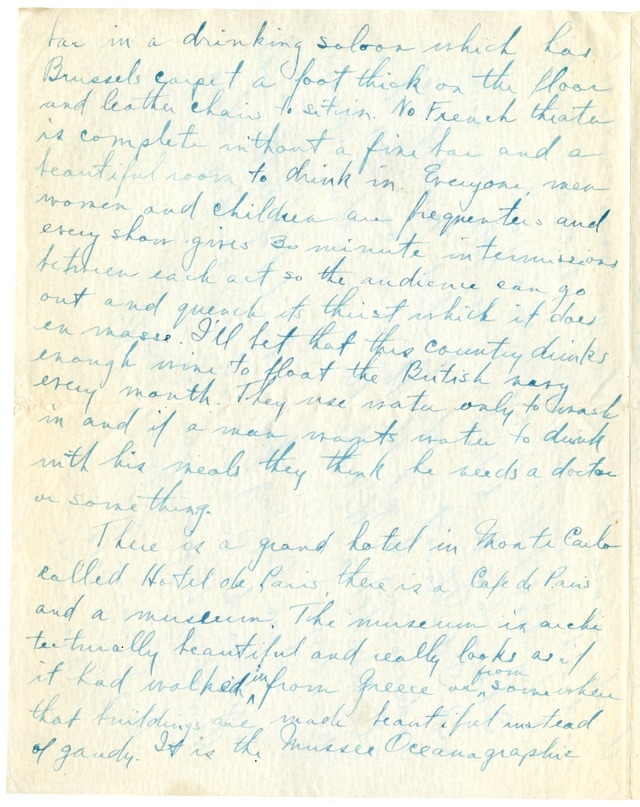 bar in a drinking saloon which has
Brussels carpet a foot thick on the floor
and leather chairs to sit in. No French theater
is complete without a fine bar and a
beautiful room to drink in. Everyone, men
women and children are frequenters and
every show gives 30 minute intermissions
between each act so the audience can go
out and quench its thirst which it does
en masse. I'll bet that this country drinks
enough wine to float the British navy
every month. They use water only to wash
in and if a man wants water to drink
with his meals they think he needs a doctor
or something.
There is a grand hotel in Monte Carlo
called Hotel de Paris, there is a Cafe de Paris
and a museum. The museum is archi
tecturally beautiful and really looks as if
it had walked in from Greece or from somewhere
that buildings are made beautiful instead
of gaudy. It is the Mussee Oceanographic